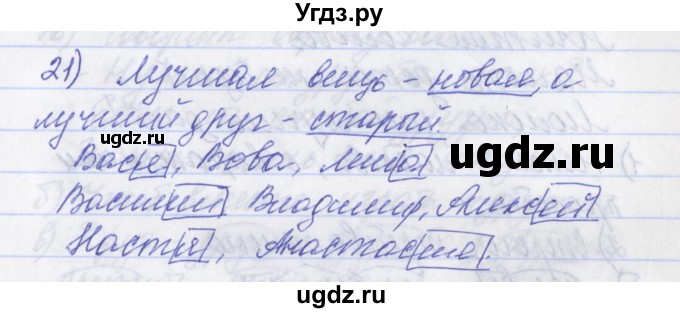 Угдз.ру
21) Лучшая вещь - новая, а
лучший друг - старый.
ugdz.ru
ugdz.ru
Вася, Вова,
Василий Владимир, Алексей
Настя, Анастасия.
ugdz.ru
ugdz.ru